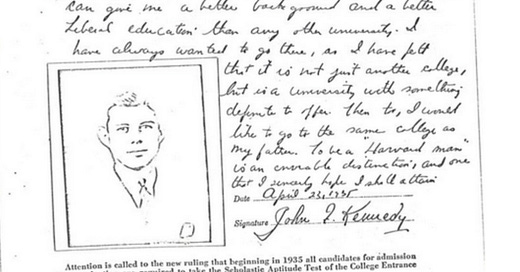 can give me a better background and a better
liberal education than any other university. I
have always wanted to go there, as I have felt
that it is not just another college,
but is a university with something
definite to offer. Then too, I would
like to go to the same college as
my father. To be a "Harvard man"
is an enviable distinction, and one
that I sincerely hope I shall attain
Date April 23, 1935
Signature John F. Kennedy
Attention is called to the new ruling that beginning in 1935 all candidates for admission
required to take the Scholastic Aptitude Test of the College Entrance